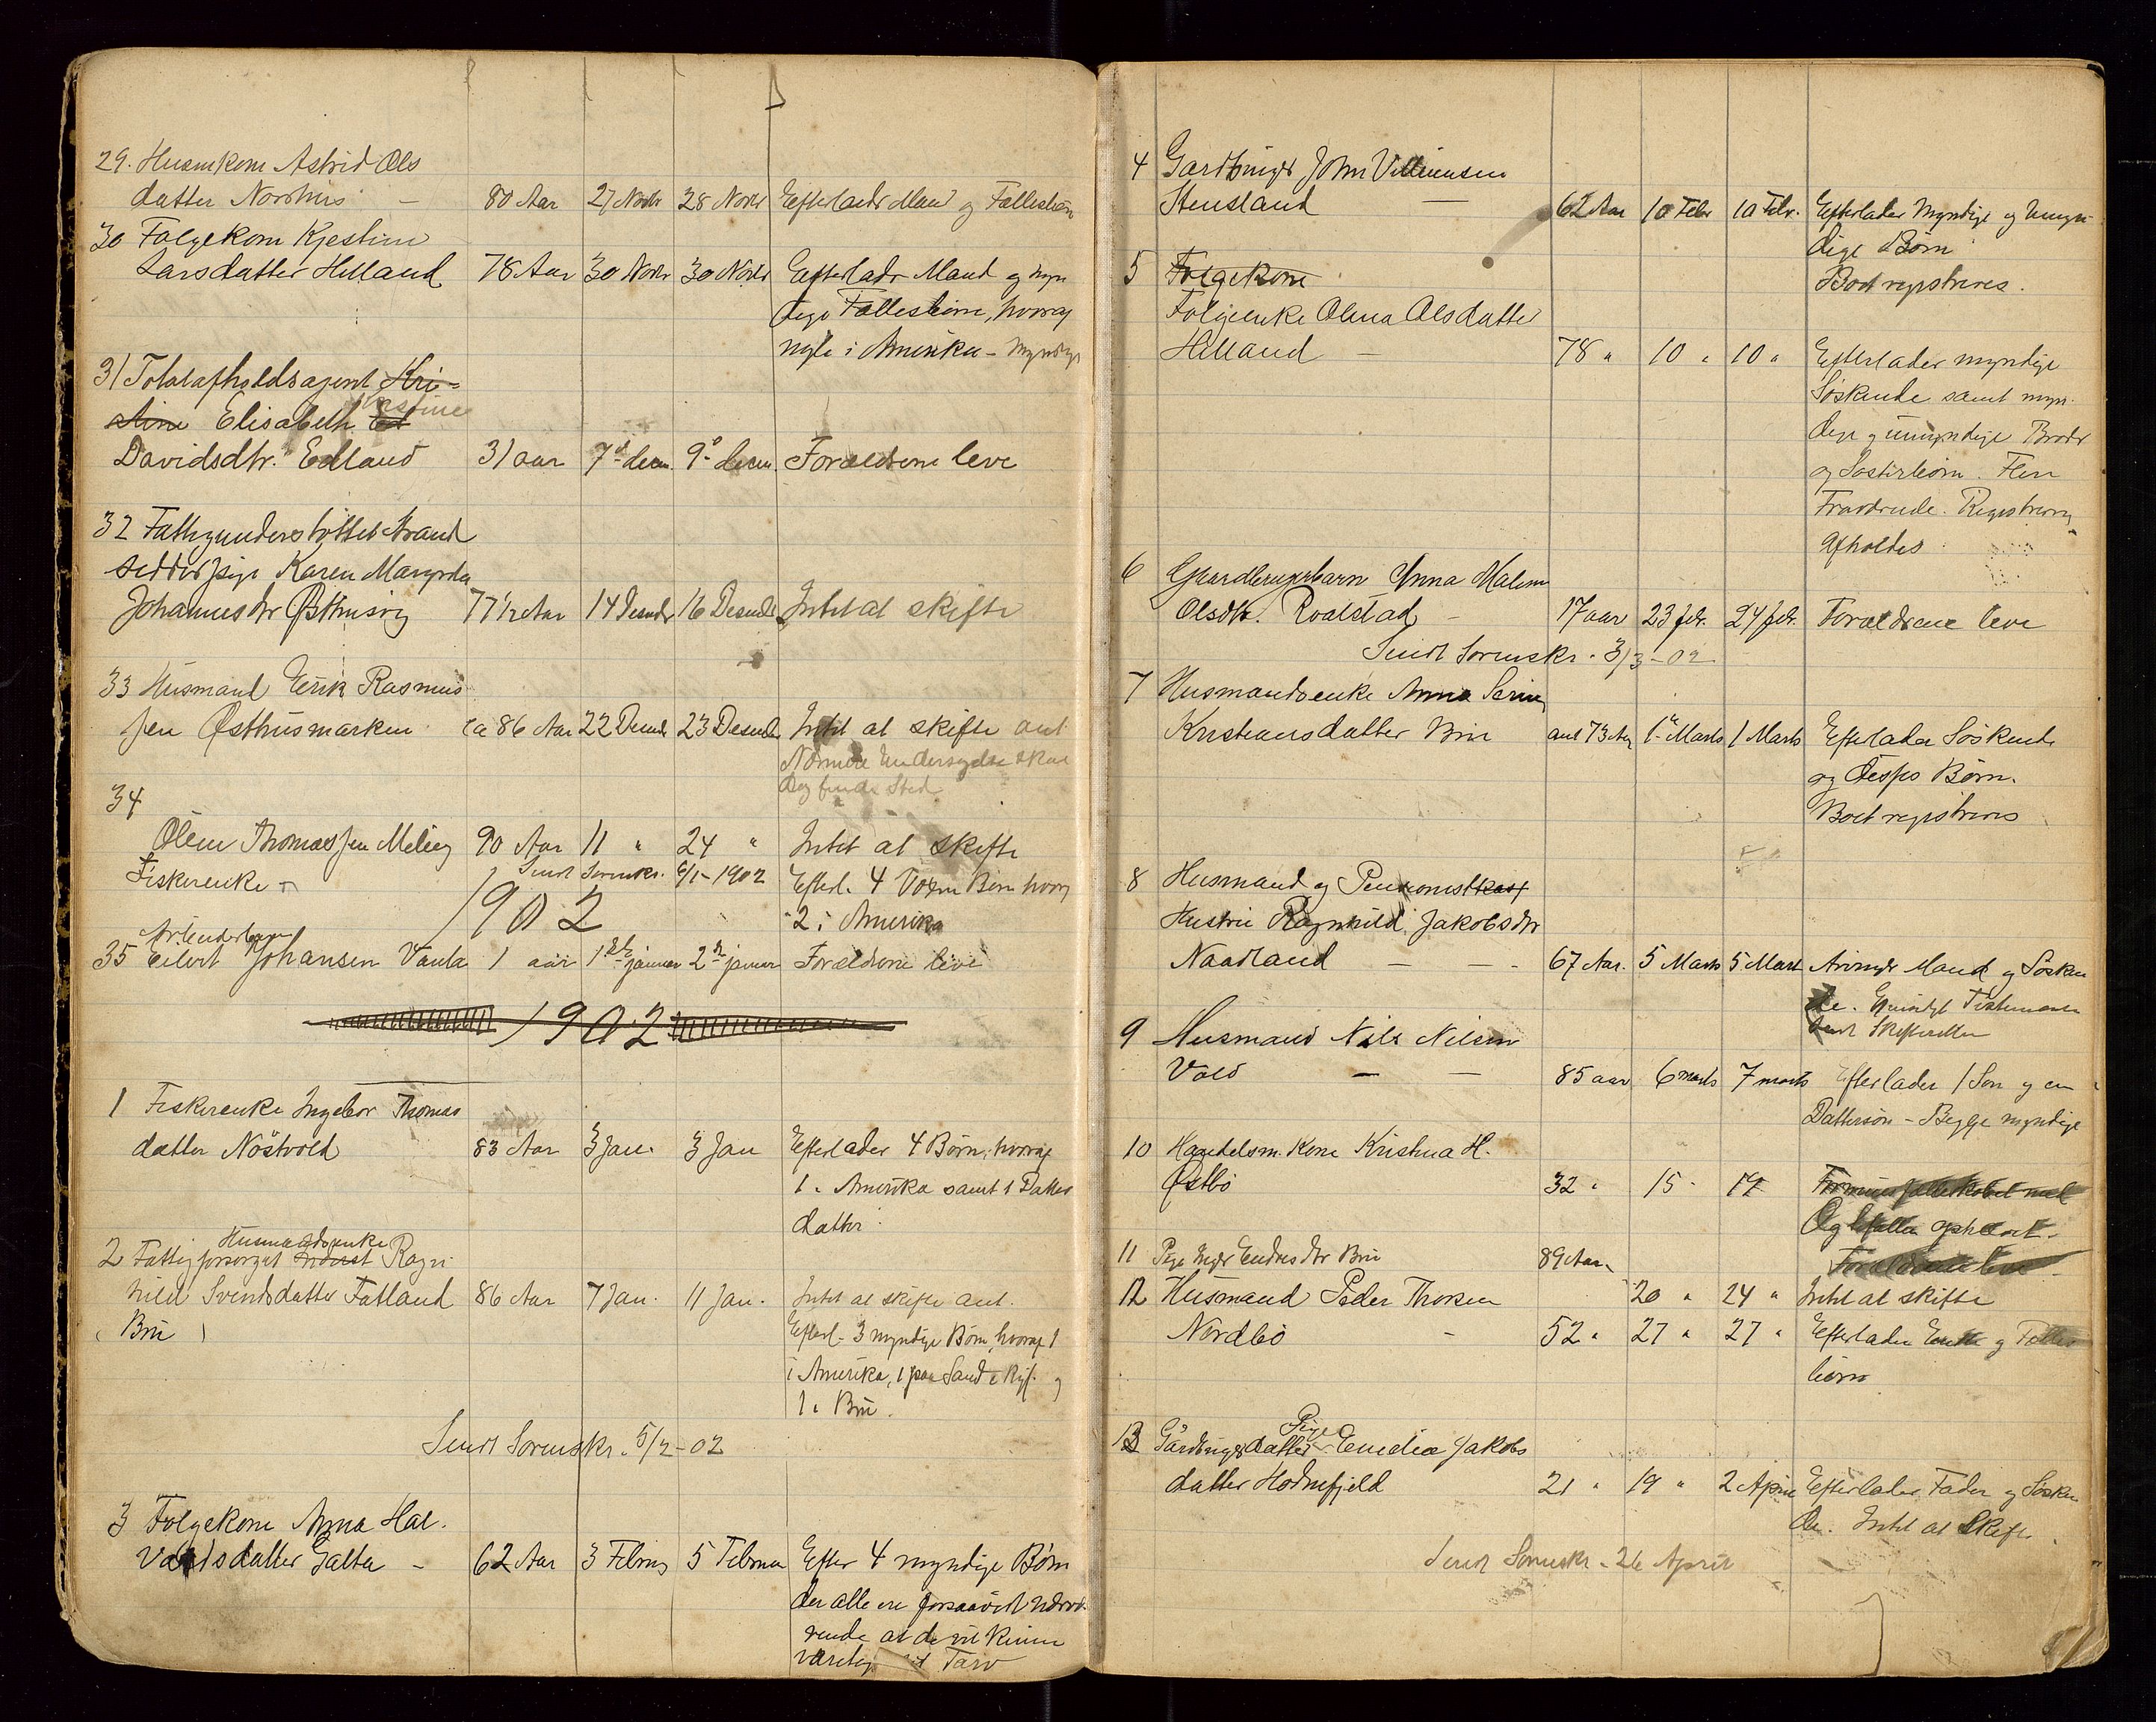 29. Husmkone Astrid Ols
datter Norhus - 80 Aar 27 Novbr 28 Novbr Efterlader Mand og Fællesbørn
30 Følgekone Kjestine
Larsdatter Helland 78 Aar 30 Novbr 30 Novbr Efterlader Mand og myn
dige Fællesbørn, hvoraf
nogle i Amerika - Myndige
31 Totalafholdsagent Kri-
stine Elisabeth Kjestine
Davidsdtr. Edland 31 aar 7d decm. 9de decm. Forældrene leve
32 Fattigunderstøttet Strand
sidderpige Karen Margrete
Johannesdtr Østhusvig 77 1/2 Aar 14 Desembr 16 Desembr Intet at skifte
33 Husmand Erik Rasmus
sen Østhusmarken ca 86 Aar 22 Desembr 23 Desembr Intet at skifte ant
Nærmere Undersøgelse skal
dog finde Sted
34
Olene Thomassen Meling 90 Aar 11 " 24 " Intet at skifte
Fiskerenke - Sendt Sorenskr. 6/1-1902 Efterl. 4 Voxne Børn hvoraf
1902 2 i Amerika
Arbeiderbarn
35 Eilert Johansen Vaula 1 aar 1ste januar 2den januar Forældrene leve
1902
1 Fiskerenke Ingebor Thomas
datter Nöstvold 83 Aar 3 Jan. 3 Jan Efterlader 4 Børn, hvoraf
1 i Amerika samt 1 Datter
datter.
Husmandsenke
2 Fattigforsørget Inderst Ragn
hild Svendsdatter Fatland 86 Aar 7 Jan. 11 Jan. Intet at skifte ant.
( Bru ) Efterl. 3 myndige Børn, hvoraf 1
i Amerika, 1 paa Sand i Ryf. og
1 i Bru.
Sendt Sorenskr. 5/2-02
3 Følgekone Anna Hal-
vardsdatter Galta - 62 Aar 3 Februar 5 Februar Efter 4 myndige Børn
der alle ere forsaavidt nærvæ-
rende at de vil kunne
varetage sit Tarv
4 Gardbruger John Villumsen
Stensland - 62 Aar 10 Febr 10 Febr. Efterlader Myndige og Umyn-
dige Børn
Boet registreres.
5 Følgekone
Følgeenke Olena Olsdatter
Helland - 78 " 10 " 10 " Efterlader myndige
Søskende samt myn-
dige og umyndige Broder
og Søsterbørn. Flere
Fraværende. Registrering
afholdes
6 Gaardbrugerbarn Anna Malene
Olsdtr. Roalstad - 17 aar 23 febr. 24 febr. Forældrene leve
Sendt Sorenskr. 3/3-02
7 Husmandsenke Anna Serine
Kristiansdatter Bru ant 73 Aar 1ste Marts 1 Marts Efterlader Søskende
og Disses Børn.
Boet registreres
8 Husmand og Pensionist
Hustru Ragnhild Jakobsdtr
Naadland - - 67 Aar. 5 Marts 5 Marts Arvinger Mand og Søsken
de. Gjensidigt Testamente
sendt Skifteretten
9 Husmand Nils Nilsen
Vold - - 85 aar 6 marts 7 marts Efterlader 1 Søn og en
Dattersøn - Begge myndige
10 Handelsm. Kone Kristina H.
Østbö 32 " 15 " 19
Og
11 Pige Inger Endresdtr Bru 89 Aar
Forældrene leve
12 Husmand Peder Thorsen 20 " 24 " Intet at skifte
Nordbö - 52 " 27 " 27 " Efterlader Enke og Fælles
børn
Pige
13 Gårdbrugerdatter Emelia Jakobs
datter Hodnefjeld 21 " 19 " 2 April Efterlader Fader og Søsken
de. Intet at Skifte.
Sendt Sorenskr. 26 April